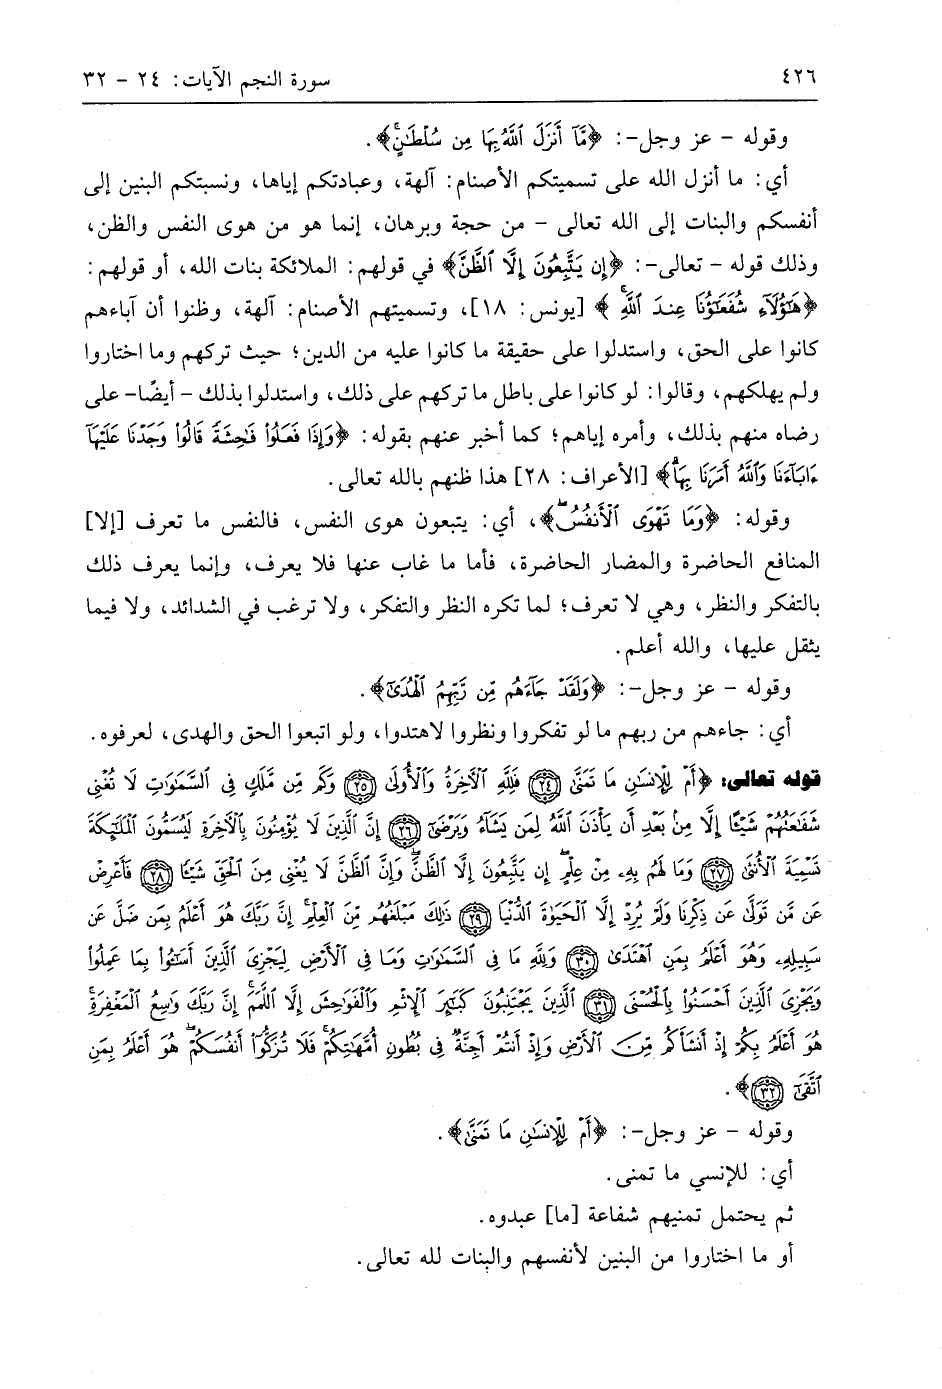 ٤٢٦ سورة النجم الآيات: ٢٤ - ٣٢
وقوله - عز وجل-: ﴿مَّآ أَنزَلَ ٱللَّهُ بِهَا مِن سُلْطَٰنٍۚ﴾.
أي: ما أنزل الله على تسميتكم الأصنام: آلهة، وعبادتكم إياها، ونسبتكم البنين إلى
أنفسكم والبنات إلى الله تعالى - من حجة وبرهان، إنما هو من هوى النفس والظن،
وذلك قوله - تعالى-: ﴿إِن يَتَّبِعُونَ إِلَّا ٱلظَّنَّ﴾ في قولهم: الملائكة بنات الله، أو قولهم:
﴿هَٰٓؤُلَآءِ شُفَعَٰٓؤُنَا عِندَ ٱللَّهِۚ ﴾ [يونس: ١٨]، وتسميتهم الأصنام: آلهة، وظنوا أن آباءهم
كانوا على الحق، واستدلوا على حقيقة ما كانوا عليه من الدين؛ حيث تركهم وما اختاروا
ولم يهلكهم، وقالوا: لو كانوا على باطل ما تركهم على ذلك، واستدلوا بذلك - أيضًا- على
رضاه منهم بذلك، وأمره إياهم؛ كما أخبر عنهم بقوله: ﴿وَإِذَا فَعَلُواْ فَٰحِشَةٗ قَالُواْ وَجَدْنَا عَلَيْهَآ
ءَابَآءَنَا وَٱللَّهُ أَمَرَنَا بِهَاۗ﴾ [الأعراف: ٢٨] هذا ظنهم بالله تعالى.
وقوله: ﴿وَمَا تَهْوَى ٱلْأَنفُسُۖ﴾، أي: يتبعون هوى النفس، فالنفس ما تعرف [إلا]
المنافع الحاضرة والمضار الحاضرة، فأما ما غاب عنها فلا يعرف، وإنما يعرف ذلك
بالتفكر والنظر، وهي لا تعرف؛ لما تكره النظر والتفكر، ولا ترغب في الشدائد، ولا فيما
يثقل عليها، والله أعلم.
وقوله - عز وجل-: ﴿وَلَقَدْ جَآءَهُم مِّن رَّبِّهِمُ ٱلْهُدَىٰٓ﴾.
أي: جاءهم من ربهم ما لو تفكروا ونظروا لاهتدوا، ولو اتبعوا الحق والهدى، لعرفوه.
قوله تعالى: ﴿أَمْ لِلْإِنسَٰنِ مَا تَمَنَّىٰ ٢٤ فَلِلَّهِ ٱلْأٓخِرَةُ وَٱلْأُولَىٰ ٢٥ وَكَم مِّن مَّلَكٍ فِى ٱلسَّمَٰوَٰتِ لَا تُغْنِى
شَفَٰعَتُهُمْ شَيْـًٔا إِلَّا مِنۢ بَعْدِ أَن يَأْذَنَ ٱللَّهُ لِمَن يَشَآءُ وَيَرْضَىٰٓ ٢٦ إِنَّ ٱلَّذِينَ لَا يُؤْمِنُونَ بِٱلْأٓخِرَةِ لَيُسَمُّونَ ٱلْمَلَٰٓئِكَةَ
تَسْمِيَةَ ٱلْأُنثَىٰ ٢٧ وَمَا لَهُم بِهِۦ مِنْ عِلْمٍۖ إِن يَتَّبِعُونَ إِلَّا ٱلظَّنَّۖ وَإِنَّ ٱلظَّنَّ لَا يُغْنِى مِنَ ٱلْحَقِّ شَيْـًٔا ٢٨ فَأَعْرِضْ
عَن مَّن تَوَلَّىٰ عَن ذِكْرِنَا وَلَمْ يُرِدْ إِلَّا ٱلْحَيَوٰةَ ٱلدُّنْيَا ٢٩ ذَٰلِكَ مَبْلَغُهُم مِّنَ ٱلْعِلْمِۚ إِنَّ رَبَّكَ هُوَ أَعْلَمُ بِمَن ضَلَّ عَن
سَبِيلِهِۦ وَهُوَ أَعْلَمُ بِمَنِ ٱهْتَدَىٰ ٣٠ وَلِلَّهِ مَا فِى ٱلسَّمَٰوَٰتِ وَمَا فِى ٱلْأَرْضِ لِيَجْزِىَ ٱلَّذِينَ أَسَٰٓـُٔواْ بِمَا عَمِلُواْ
وَيَجْزِىَ ٱلَّذِينَ أَحْسَنُواْ بِٱلْحُسْنَى ٣١ ٱلَّذِينَ يَجْتَنِبُونَ كَبَٰٓئِرَ ٱلْإِثْمِ وَٱلْفَوَٰحِشَ إِلَّا ٱللَّمَمَۚ إِنَّ رَبَّكَ وَٰسِعُ ٱلْمَغْفِرَةِۚ
هُوَ أَعْلَمُ بِكُمْ إِذْ أَنشَأَكُم مِّنَ ٱلْأَرْضِ وَإِذْ أَنتُمْ أَجِنَّةٌ فِى بُطُونِ أُمَّهَٰتِكُمْۖ فَلَا تُزَكُّوٓاْ أَنفُسَكُمْۖ هُوَ أَعْلَمُ بِمَنِ
ٱتَّقَىٰٓ ٣٢﴾.
وقوله - عز وجل-: ﴿أَمْ لِلْإِنسَٰنِ مَا تَمَنَّىٰ﴾.
أي: للإنسي ما تمنى.
ثم يحتمل تمنيهم شفاعة [ما] عبدوه.
أو ما اختاروا من البنين لأنفسهم والبنات لله تعالى.